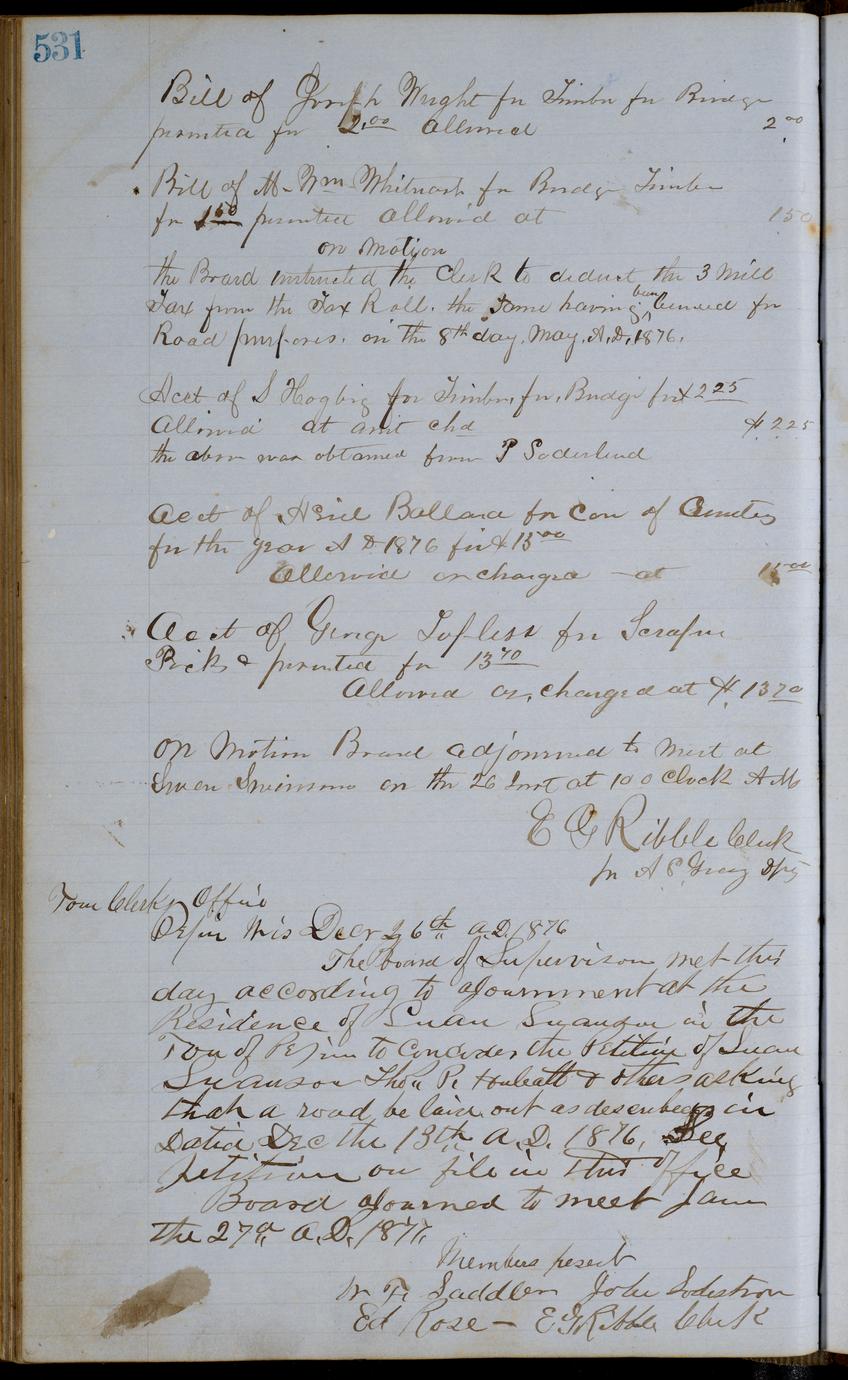 531
Bill of Joseph Wright for Timber for Bridge
presented for 2.00 allowed 2.00
Bill of M. Wm Whitnash for Bridge Timber
for 1.50 presented allowed at 1.50
on Motion
the Board instructed the Clerk to deduct the 3 Mill
Tax from the Tax Roll. the same having been levied for
Road purposes. on the 8th day. May. A.D. 1876.
Acct of S Hogbig for Timber, for, Bridge for $2.25
Allowed at amt chd $2.25
the above was obtained from P Soderlund
acct of Ballard for Care of
for the year A D 1876 for $15.00
Allowed as charged at 15.00
Acct of George for Scraper
Pick & presented for 13.70
Allowed as, charged at $13.70
on Motion Board adjourned to meet at
Swan Swansons on the 26 Inst at 10 o Clock A M
E G Ribble Clerk
pr A S Gray Dpty
Town Clerks Office
Pepin Wis Decr 26th A.D. 1876
The board of Supervisors met this
day according to ajournment at the
Residence of Swan Swanson in the
Town of Pepin to Concider the Petition of Swan
Swanson Thos & others asking
that a road be laid out as described in
Datid Dec the 13th A.D. 1876, See
petition on file in this office
Board ajourned to meet Jan
the 27th A.D. 1877,
Members present
Saddler John
Ed Rose — E G Ribble Clerk